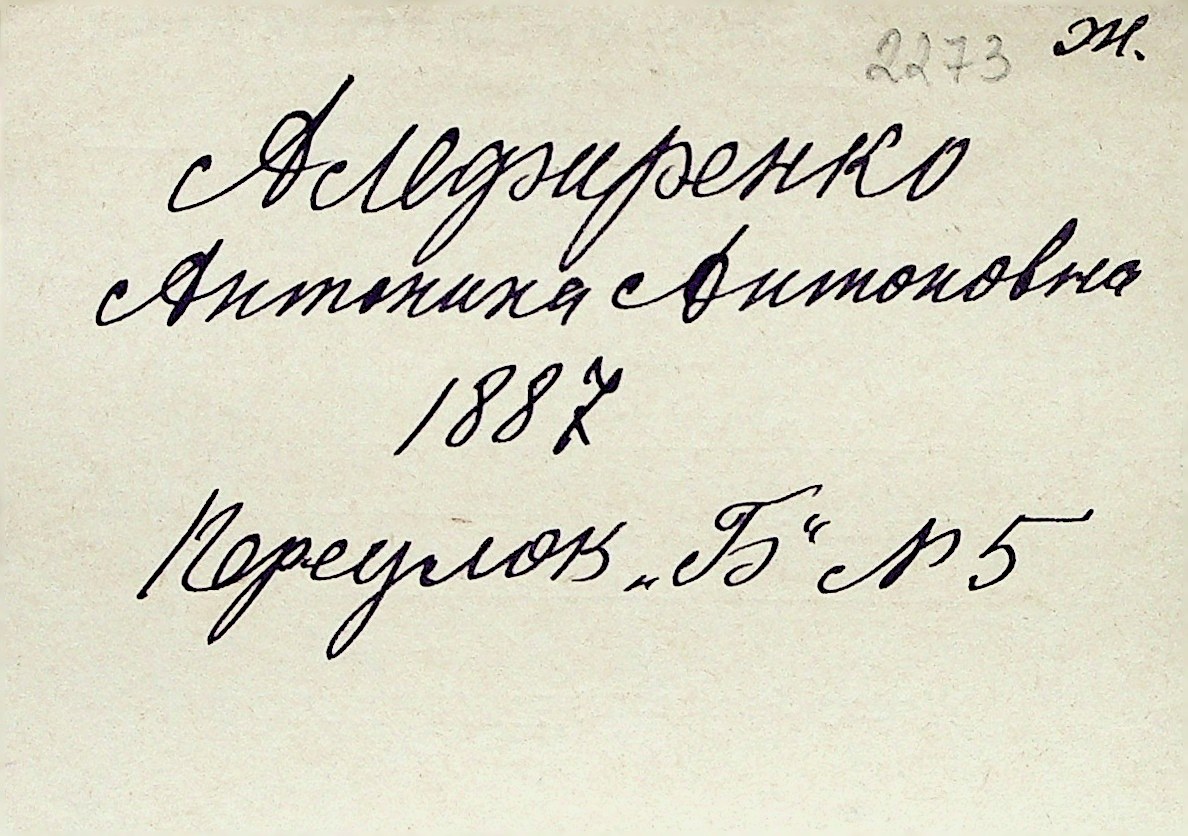 2273 ж.
Алефиренко
Антонина Антоновна
1887
Переулок „Б“ № 5